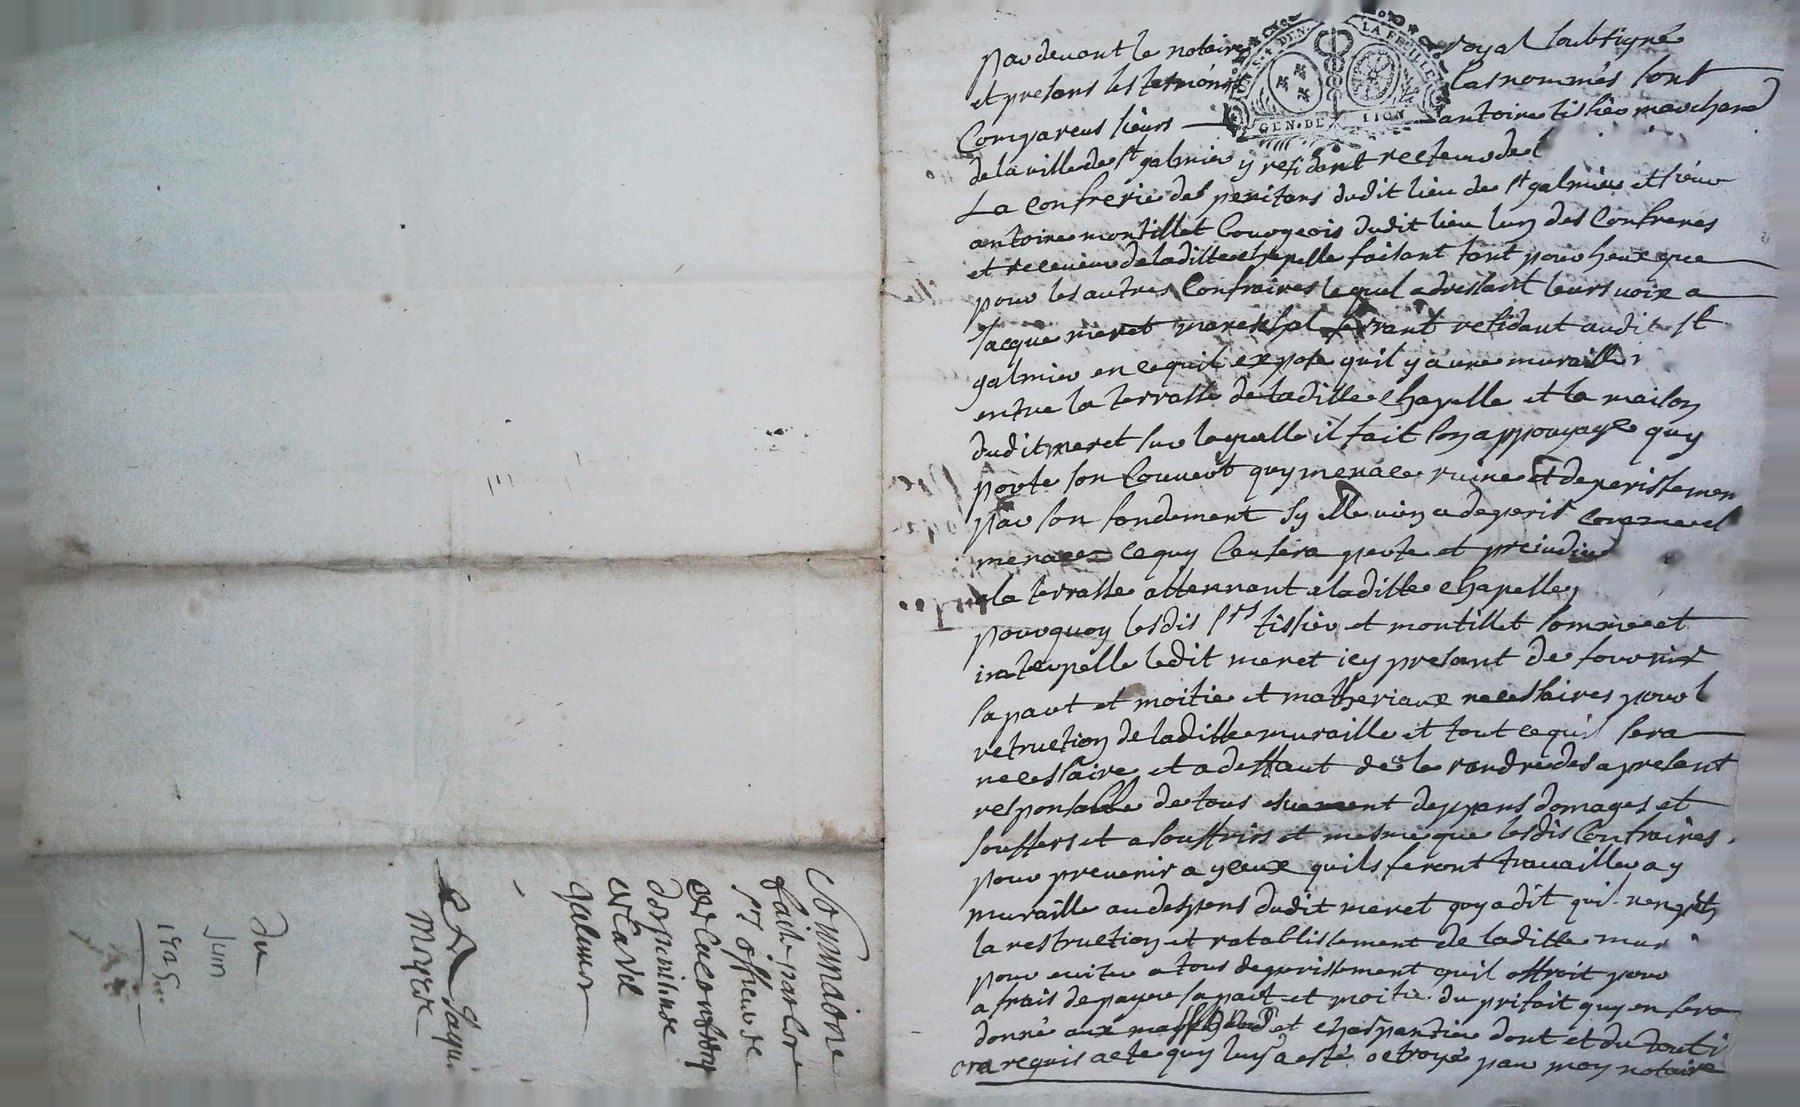 pardevant le notaire royal soubsigné
et presans les temoins bas nommés sont
Comparus sieurs antoine tissier marchand
de la ville de st galmier y residant recteur de
La confrerie des penitans dudit lieu de st galmier et sieur
antoine montillet bourgeois dudit lieu lun des Confreres
et receveur de laditte chapelle faisant tant pour heux que
pour les autres Confraires lequel adressant leurs voix a
Jacque meret mareschal ferrant residant audit st
galmier en ce quil expose quil y a une muraille
entre la terrasse de laditte chapelle et la maison
dudit meret sur laquelle il fait son appouyage quy
porte son Couvert quy menace ruine et deperissemen
par son fondement sy elle vien a deperir comme el
menace ce quy Causera perte et prejudice
a la terrasse attennant a laditte chapelle
pourquoy lesdis srs tissier et montillet somme et
interpelle ledit meret icy presant de fournir
sa part et moitie et matheriaux necessaires pour l
retruction de laditte muraille et tout ce quil sera
necessaire et a deffaut de le randre des apresent
responsable de tous deppans domages et
souffers et a souffrirs et mesme que lesdis Confraires
pour prevenir a yceux quils feront travailler a y
muraille au despens dudit meret quy a dit quil
la restruction et ratablissement de laditte mur
pour eviter a tous deperissement quil offroit pour
a frais de payer sa part et moitie du prifait quy en sera
donné aux massons et charpantier dont et du tout i
ora requis acte quy luy a esté octroyé par moy notaire
Sommaone
faite par Les
srs officeur de
de La Confrery
des penitent
de La ville
galmier
Et Jaque
Mayre
Du
Juin
GEN. DE LION
LA FEUILLE